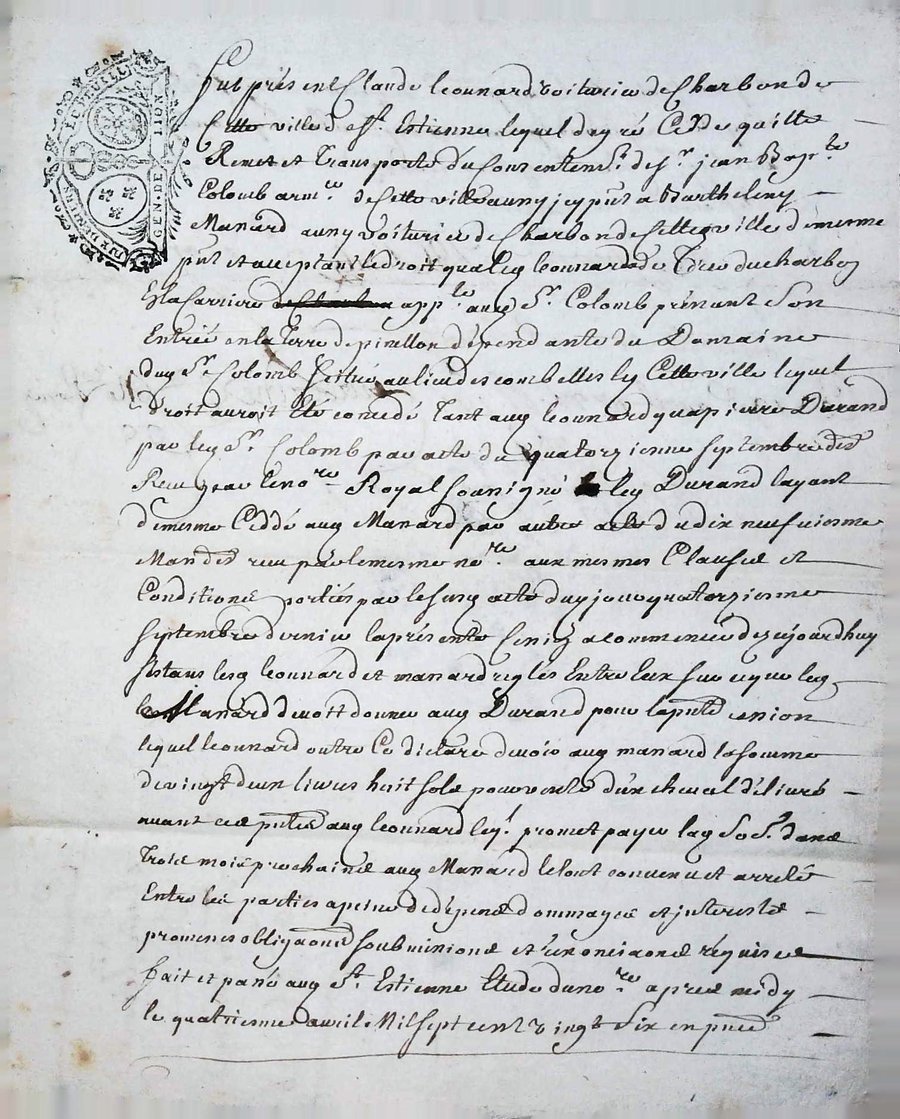 GEN. DE LION
Fut présent Claude Leonnard voiturier de Charbon de
Cette ville de St. Estienne lequel de gré Cedde quitte
Remet et transporte du Consentemt. de Sr. jean Bapte.
Colomb armte. de Cette ville auny jcy pnt a Barthelemy
Manard auny voiturier de Charbon de Cette ville demesme
pnt et acceptant le droit qua led Leonnard de Tirer du charbon
En la Carriere appte. aud Sr. Colomb prénant Son
Entrée en la Terre depinellon dépendante du Domaine
dud Sr. Colomb Scitué au lieu des combelles les Cette ville lequel
Droit auroit été concédé Tant aud Leonnard qua pierre Durand
par led Sr. Colomb par acte du quatorzienne septembre der
Receu par le nore. Royal sounigné led Durand layant
demesme Ceddé aud Manard par autre acte du dix neufuiesme
Mars der receu par le mesme nore. aux mesmes Clauses et
Conditions portées par le susd acte dud jour quatorziesme
septembre dernier la présente a commencé dezaujourdhuy
sestans lesd Leonnard et manard reglés Entre eux sur ce que led
Manard devoit donner aud Durand pour la pnte
lequel Leonnard outre Ce déclare devoir aud manard la somme
de vingt deux livres huit sols pour vente dun cheval délivré
avant ces pntes aud Leonnard leql. promet payer lad So.e. dans
Trois mois prochains aud Manard le tout convenu et arresté
Entre les parties a peine de dépens dommages et jnterests
promeses obligaons soubmissions et renonciaons réquises
fait et passé aud St. Estienne Etude du nore. apres midy
le quatriesme avril Mil Sept cent vingt Six en pnce